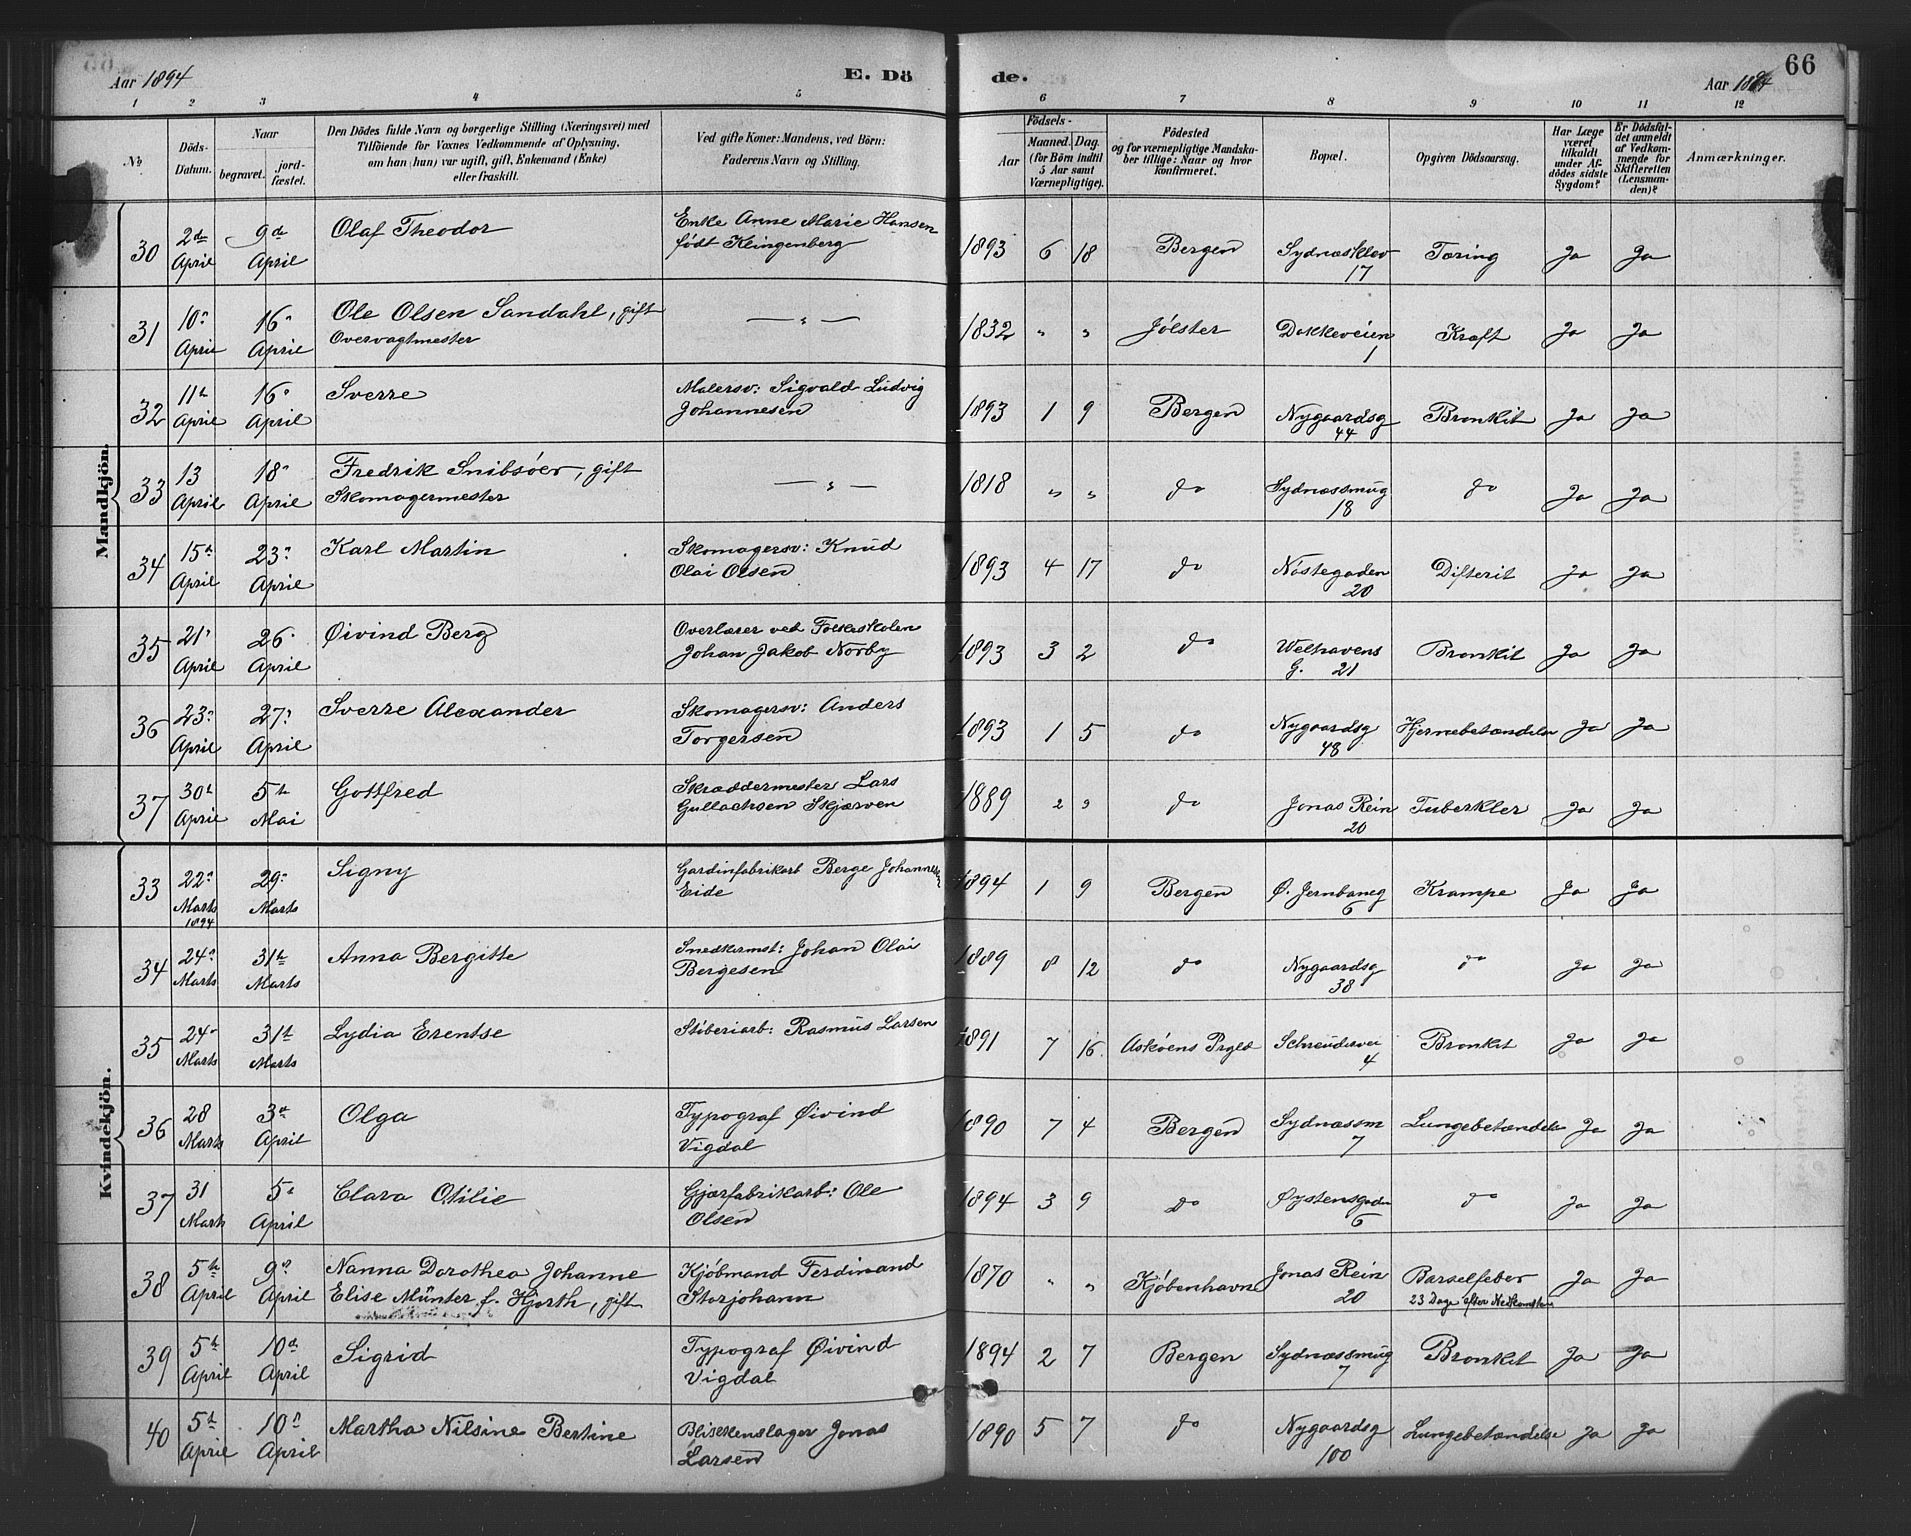 Aar 1894
E. Dö
de.
66
Aar 1894
1 2 3 4 5 6 7 8 9 10 11 12
№
Döds-Datum.
Naar
begravet.
jord-fæstet.
Den Dödes fulde Navn og borgerlige Stilling (Næringsvei) med
Tilföiende for Voxnes Vedkommende af Oplysning,
om han (hun) var ugift, gift, Enkemand (Enke)
eller fraskilt.
Ved gifte Koner: Mandens, ved Börn:
Faderens Navn og Stilling.
Födsels-
Aar
Maaned. Dag.
(for Börn indtil
5 Aar samt
Værnepligtige).
Födested
og for værnepligtige Mandska-
ber tillige: Naar og hvor
konfirmeret.
Bopæl.
Opgiven Dödsaarsag.
Har Læge
været
tilkaldt
under Af-
dödes sidste
Sygdom?
Er Dödsfal-
det anmeldt
af Vedkom-
mende for
Skifteretten
(Lensman-
den)?
Anmærkninger.
Mandkjön.
30 2den April 9de April Olaf Theodor Enke Anne Marie Hansen født Klingenberg 1893 6 18 Bergen Sydnæsklev 17 Tæring Ja Ja
31 10n April 16n April Ole Olsen Sandahl, gift Overvagtmester — " — 1832 " " Jölster Dokkeveien 1 Kræft Ja Ja
32 11te April 16n April Sverre Malersv: Sigvald Ludvig Johannesen 1893 1 9 Bergen Nygaardsg 44 Bronkit Ja Ja
33 13 April 18n April Fredrik Snibsöer, gift Skomagermester — " — 1818 " " do Sydnæssmug 18 do Ja Ja
34 15n April 23n April Karl Martin Skomagersv: Knud Olai Olsen 1893 4 17 do Nöstegaden 20 Difterit Ja Ja
35 21n April 26n April Øivind Berg Overlærer ved Folkeskolen Johan Jakob Norby 1893 3 2 do Welhavens G. 21 Bronkit Ja Ja
36 23n April 27n April Sverre Alexander Skomagersv: Anders Torgersen 1893 1 5 do Nygaardsg 48 Hjernebetændelse Ja Ja
37 30te April 5te Mai Gottfred Skræddermester Lars Gullachsen Skjærven 1889 2 3 do Jonas Rein 20 Tuberkler Ja Ja
Kvindekjön.
33 22n Marts 1894 29n Marts Signy Gardinfabrikarb Berge Johannesen Eide 1894 1 9 Bergen Ø. Jernbaneg 6 Krampe Ja Ja
34 24n Marts 31te Marts Anna Bergitte Snedkermst: Johan Olai Bergesen 1889 8 12 do Nygaardsg 38 do Ja Ja
35 24n Marts 31te Marts Lydia Erentse Stiberiarb: Rasmus Larsen 1891 7 16 Askøens Prgld Schreudersvei 4 Bronkit Ja Ja
36 28 Marts 3die April Olga Typograf Øivind Vigdal 1890 7 4 Bergen Sydnæssm 7 Lungebetændelse Ja Ja
37 31 Marts 5te April Clara Otilie Gjærfabrikarb: Ole Olsen 1894 3 9 do Øystensgaden 6 do Ja Ja
38 5te April 9n April Nanna Dorothea Johanne Elise Münter f. Hjorth, gift Kjöbmand Ferdinand Storjohann 1870 " " Kjöbenhavn Jonas Rein 20 Barselfeber 23 Dage efter Nedkomsten Ja Ja
39 5te April 10de April Sigrid Typograf Øivind Vigdal 1894 2 7 Bergen Sydnæssmug 7 Bronkit Ja Ja
40 5te April 10n April Martha Nilsine Bertine Blikkenslager Jonas Larsen 1890 5 7 do Nygaardsg 100 Lungebetændelse Ja Ja